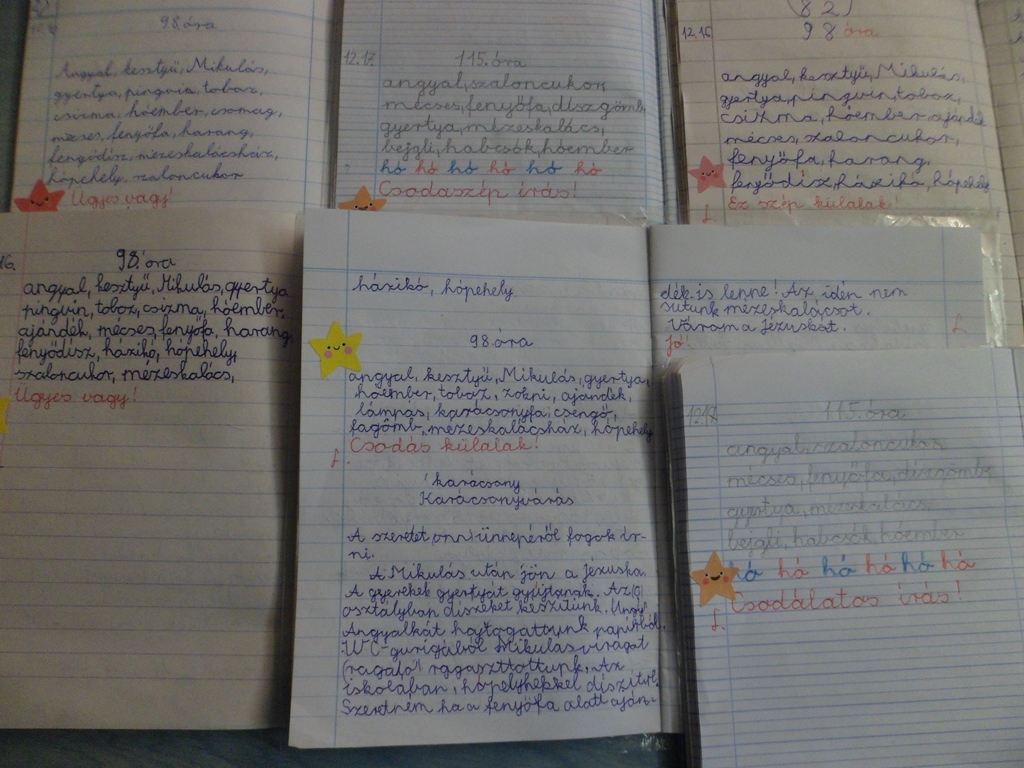 98. óra
Angyal, kesztyű, Mikulás,
gyertya, pingvin, toboz,
csizma, hóember, csomag,
mécses, fenyőfa, harang,
fenyődísz, mézeskalácsház,
hópehely, szaloncukor
Ügyes vagy!
12.17. 115. óra
angyal, szaloncukor,
mécses, fenyőfa, díszgömb,
gyertya, mézeskalács,
bejgli, habcsók, hóember
hó hó hó hó hó hó
Csodaszép írás!
(82)
12.16 98 óra
angyal, kesztyű, Mikulás,
gyertya, pingvin, toboz,
csizma, hóember, ajándék
mécses, szaloncukor,
fenyőfa, harang,
fenyődísz, házikó, hópehely
Ez szép külalak!
98. óra
angyal, kesztyű, Mikulás, gyertya
pingvin, toboz, csizma, hóember
ajándék, mécses, fenyőfa, harang,
fenyődísz, házikó, hópehely,
szaloncukor, mézeskalács,
Ügyes vagy!
házikó, hópehely
98. óra
angyal, kesztyű, Mikulás, gyertya,
hóember, toboz, zokni, ajándék,
lámpás, karácsonyfa, csengő,
fagömb, mézeskalácsház, hópehely
Csodás külalak!
karácsony
Karácsonyvárás
A szeretet ünnepéről fogok ír-
ni.
A Mikulás után jön a Jézuska.
A gyerekek gyertyát gyújtanak. Az
osztályban díszeket készítünk.
Angyalkát hajtogattunk papírból.
WC-gurigából Mikulásvirágot
Az
iskolában, hópelyhekkel
Szeretném ha a fenyőfa alatt aján-
dék is lenne! Az idén nem
sütünk mézeskalácsot.
Várom a Jézuskát.
Jó!
12.17 115. óra
angyal, szaloncukor,
mécses, fenyőfa, díszgömb
gyertya, mézeskalács
bejgli, habcsók, hóember
hó hó hó hó hó hó
Csodálatos írás!